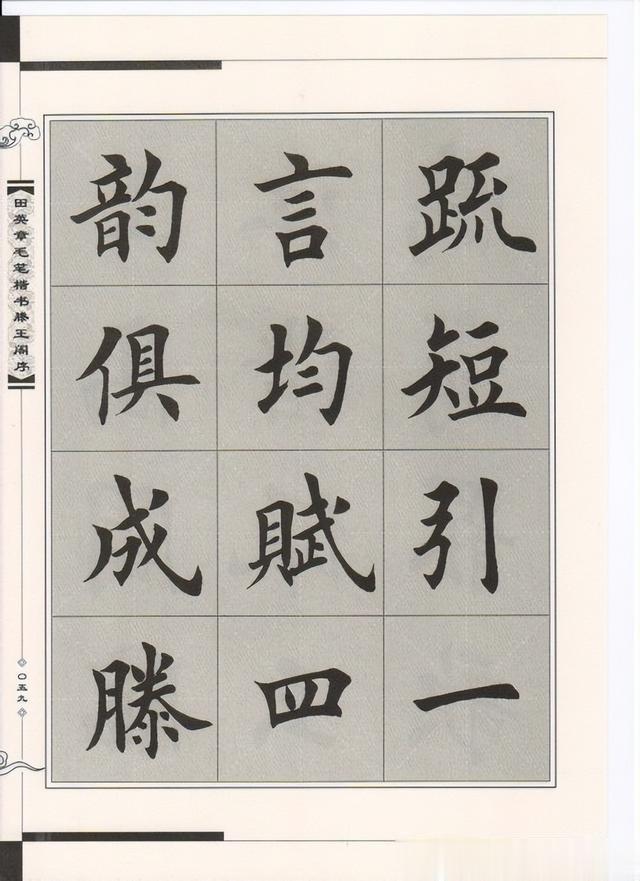 疏短引一
言均賦四
韵俱成滕
田英章毛笔楷书滕王阁序
〇五九